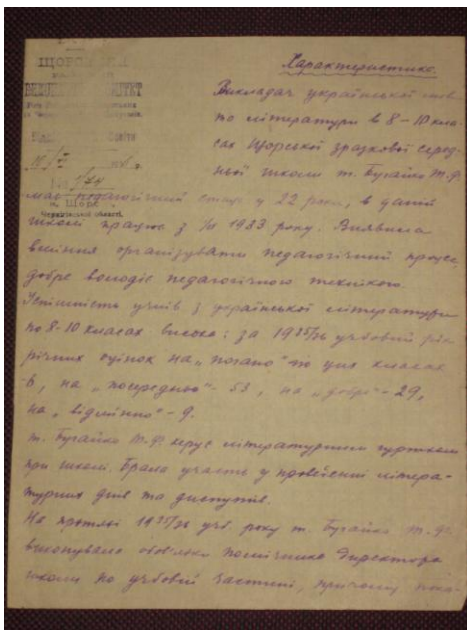 ЩОРС
Характеристика.
Викладач української мови
та літератури в 8-10 кла-
сах Щорської зразкової серед-
ньої школи т. Бугайко Т.Ф.
має педагогічний стаж у 22 роки, в даній
школі працює з 1933 року. Виявила
вміння організувати педагогічний процес,
добре володіє педагогічною технікою.
Успішність учнів з української літератури
по 8-10 класах висока: за 1935/36 учбовий рік
річних оцінок на „погано" по цих класах
6, на „посередньо" - 53, на „добре" - 29,
на „відмінно" - 9.
т. Бугайко Т.Ф. керує літературним гуртком
при школі. Брала участь у проведенні літера-
турних днів та диспутів.
На протязі 1935/36 учб. року т. Бугайко Т.Ф.
виконувала обов'язки помічника директора
школи по учбовій частині, причому